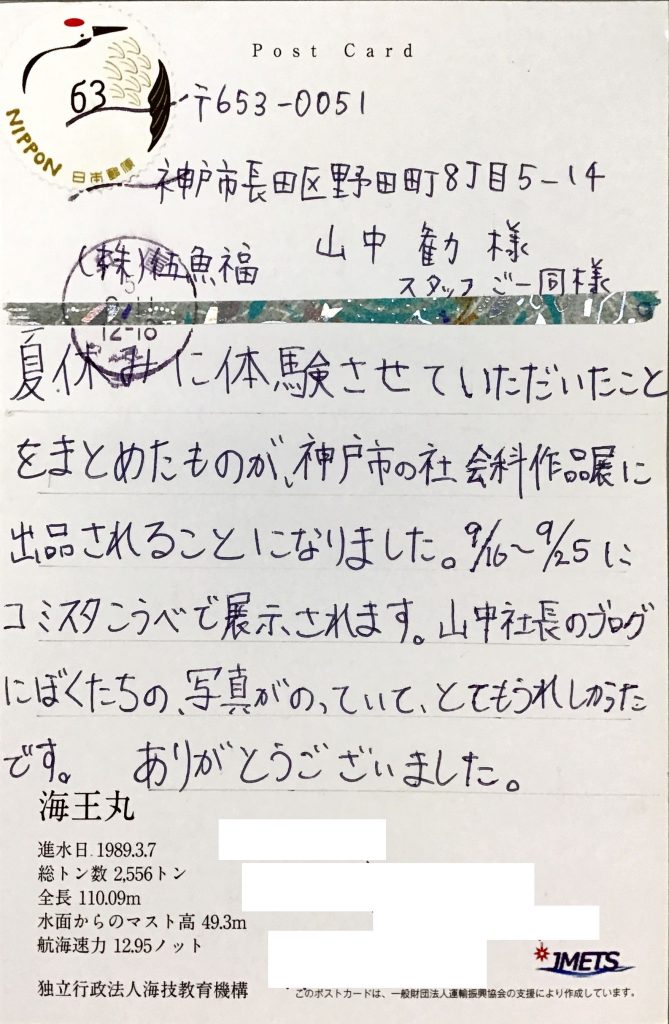 Post Card
63
NIPPON
日本郵便
〒653-0051
神戸市長田区野田町8丁目5-14
(株)伍魚福
山中 勧 様
スタッフ ご一同様
12-18
夏休みに体験させていただいたこと
をまとめたものが、神戸市の社会科作品展に
出品されることになりました。9/16〜9/25に
コミスタこうべで展示されます。山中社長のブログ
にぼくたちの、写真がのっていて、とてもうれしかった
です。 ありがとうございました。
海王丸
進水日 1989.3.7
総トン数 2,556トン
全長 110.09m
水面からのマスト高 49.3m
航海速力 12.95ノット
独立行政法人海技教育機構
JMETS
このポストカードは、一般財団法人運輸振興協会の支援により作成しています。